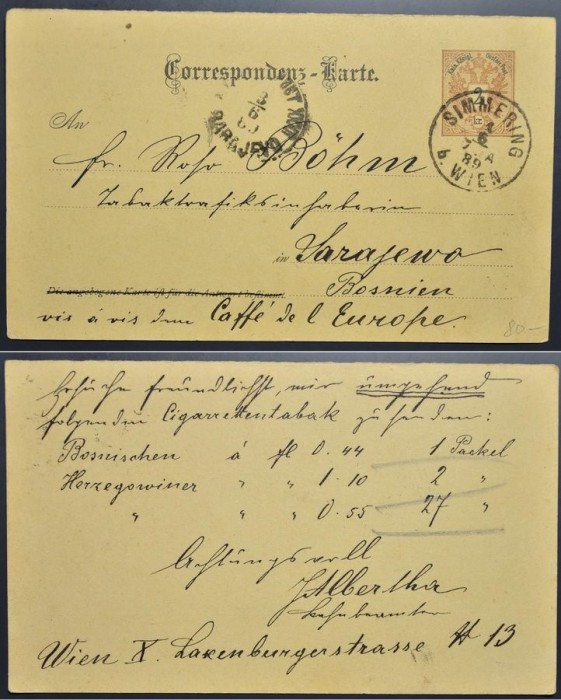 Correspondenz-Karte.
2
kr.
SIMMERING
6
89
b. WIEN
2
6
89
SARAJEVO
An
Fr. Rosa Böhm
Tabaktrafiksinhaberin
in Sarajewo
Bosnien
Die angebogene Karte ist für die Antwort bestimmt.
vis á vis dem Caffé de l Europe.
80-
Ersuche freundlichst, mir umgehend
folgenden Cigarrettentabak zu senden:
Bosnischen á fl 0.44 1 Packel
Herzegowiner " " 1.10 2 "
" " " 0.55 27 "
Achtungsvoll
J Albertha
Wien X. Laxenburgerstrasse # 13